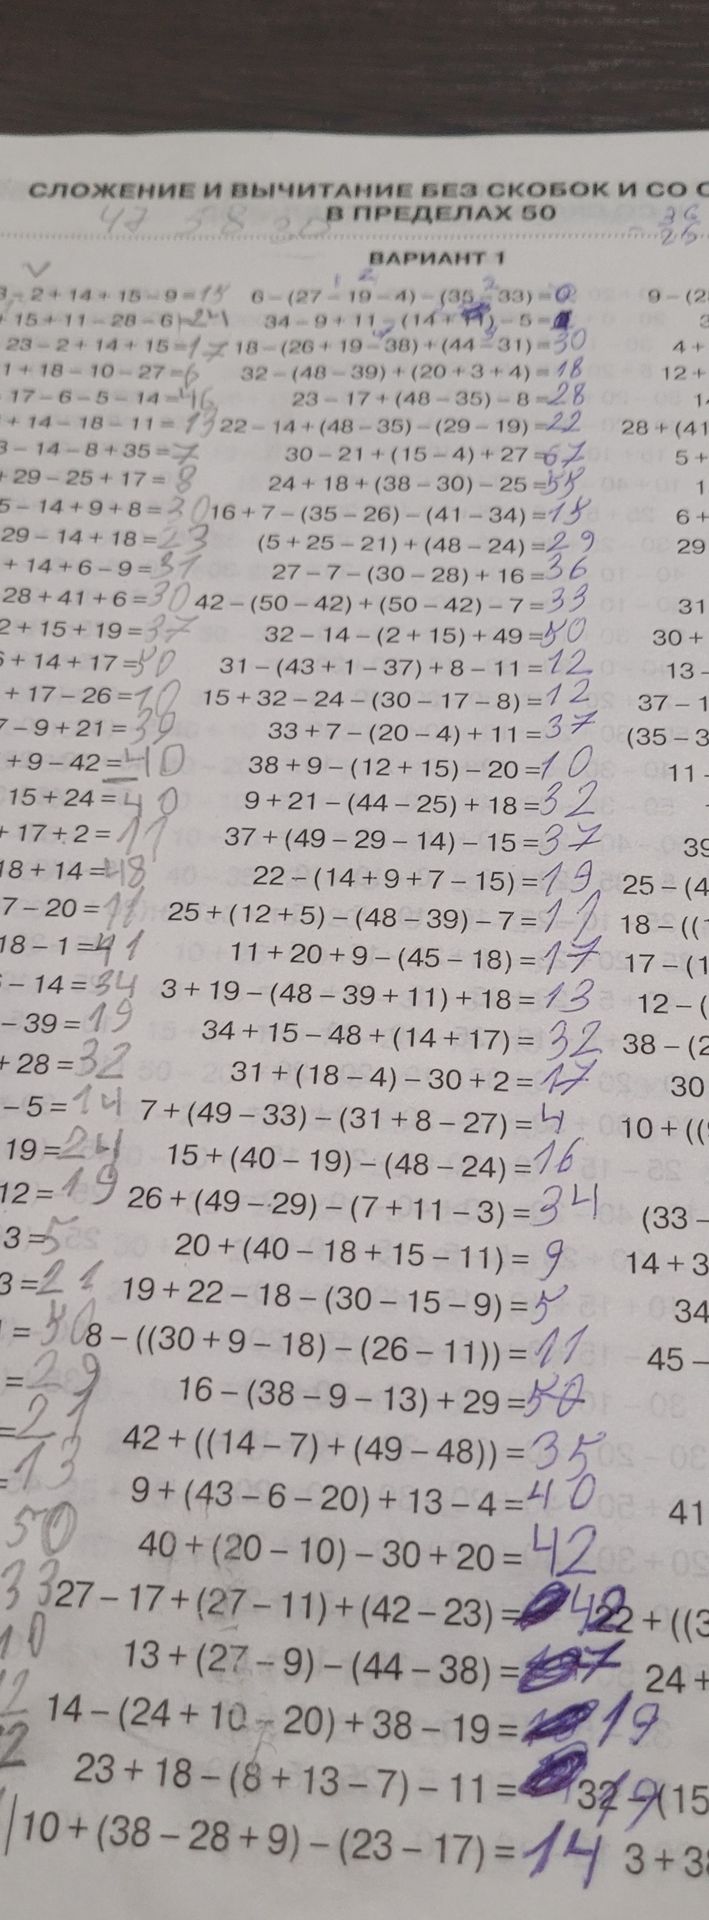 СЛОЖЕНИЕ И ВЫЧИТАНИЕ БЕЗ СКОБОК И СО С
В ПРЕДЕЛАХ 50
ВАРИАНТ 1
- 2 + 14 + 15 - 9 = 6 - (27 - 19 - 4) - (35 - 33) = 0 9 - (2
15 + 11 - 28 - 6 = 24 34 - 9 + 11 - (14 + 11) - 5 = 3
23 - 2 + 14 + 15 = 17 18 - (26 + 19 - 38) + (44 - 31) = 30 4 +
1 + 18 - 10 - 27 = 6 32 - (48 - 39) + (20 + 3 + 4) = 18 12 +
17 - 6 - 5 - 14 = 46 23 - 17 + (48 - 35) - 8 = 28 1
+ 14 - 18 - 11 = 13 22 - 14 + (48 - 35) - (29 - 19) = 22 28 + (41
3 - 14 - 8 + 35 = 7 30 - 21 + (15 - 4) + 27 = 67 5 +
+ 29 - 25 + 17 = 8 24 + 18 + (38 - 30) - 25 = 58 1
5 - 14 + 9 + 8 = 30 16 + 7 - (35 - 26) - (41 - 34) = 15 6 +
29 - 14 + 18 = 23 (5 + 25 - 21) + (48 - 24) = 29 29
+ 14 + 6 - 9 = 31 27 - 7 - (30 - 28) + 16 = 36
28 + 41 + 6 = 30 42 - (50 - 42) + (50 - 42) - 7 = 33 31
2 + 15 + 19 = 37 32 - 14 - (2 + 15) + 49 = 50 30 +
+ 14 + 17 = 50 31 - (43 + 1 - 37) + 8 - 11 = 12 13 -
+ 17 - 26 = 10 15 + 32 - 24 - (30 - 17 - 8) = 12 37 - 1
7 - 9 + 21 = 39 33 + 7 - (20 - 4) + 11 = 37 (35 - 3
+ 9 - 42 = 40 38 + 9 - (12 + 15) - 20 = 10 11 -
15 + 24 = 40 9 + 21 - (44 - 25) + 18 = 32
+ 17 + 2 = 11 37 + (49 - 29 - 14) - 15 = 37 39
18 + 14 = 48 22 - (14 + 9 + 7 - 15) = 19 25 - (4
7 - 20 = 11 25 + (12 + 5) - (48 - 39) - 7 = 11 18 - ((
18 - 1 = 41 11 + 20 + 9 - (45 - 18) = 17 17 - (1
- 14 = 34 3 + 19 - (48 - 39 + 11) + 18 = 13 12 - (
- 39 = 19 34 + 15 - 48 + (14 + 17) = 32 38 - (2
+ 28 = 32 31 + (18 - 4) - 30 + 2 = 17 30
- 5 = 14 7 + (49 - 33) - (31 + 8 - 27) = 4 10 + ((
19 = 24 15 + (40 - 19) - (48 - 24) = 16
12 = 19 26 + (49 - 29) - (7 + 11 - 3) = 34 (33 -
3 = 5 20 + (40 - 18 + 15 - 11) = 9 14 + 3
3 = 21 19 + 22 - 18 - (30 - 15 - 9) = 5 34
= 50 8 - ((30 + 9 - 18) - (26 - 11)) = 11 45 -
= 29 16 - (38 - 9 - 13) + 29 = 50
= 21 42 + ((14 - 7) + (49 - 48)) = 35
= 13 9 + (43 - 6 - 20) + 13 - 4 = 40 41
50 40 + (20 - 10) - 30 + 20 = 42
33 27 - 17 + (27 - 11) + (42 - 23) = 42 22 + ((3
10 13 + (27 - 9) - (44 - 38) = 7 24 +
14 - (24 + 10 - 20) + 38 - 19 = 19
23 + 18 - (8 + 13 - 7) - 11 = 19 32 - (15
10 + (38 - 28 + 9) - (23 - 17) = 14 3 + 38